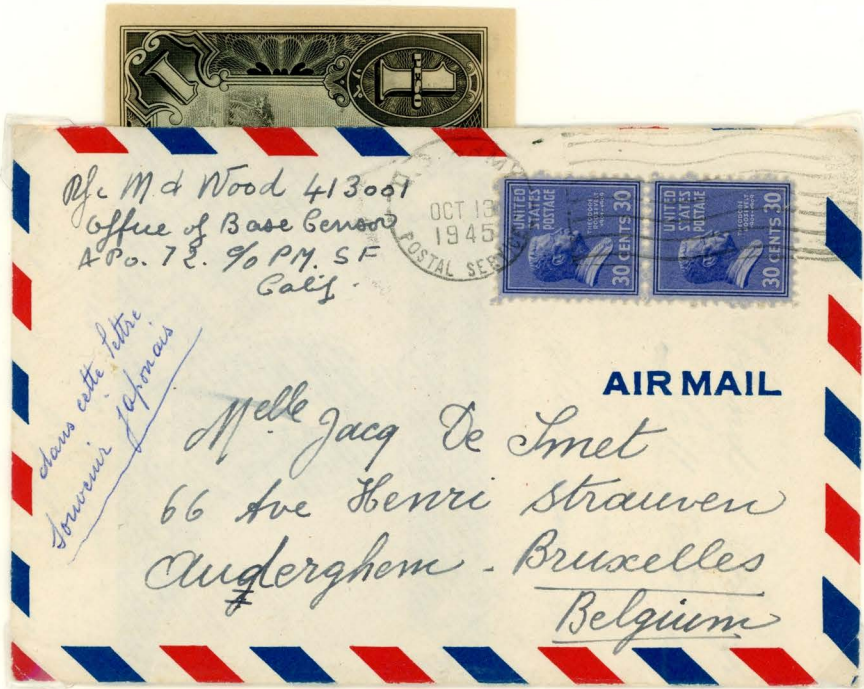 1
1
PESO
Pfc M d Wood 413001
Office of Base Censor
A Po. 72. c/o PM. SF
Calif.
OCT 1945
POSTAL SERVICE
UNITED STATES POSTAGE
THEODORE ROOSEVELT
30 CENTS 30
UNITED STATES POSTAGE
THEODORE ROOSEVELT
30 CENTS 30
dans cette lettre
souvenir japonais
AIR MAIL
Melle Jacq De Smet
66 Ave Henri Strauven
Auderghem - Bruxelles
Belgium